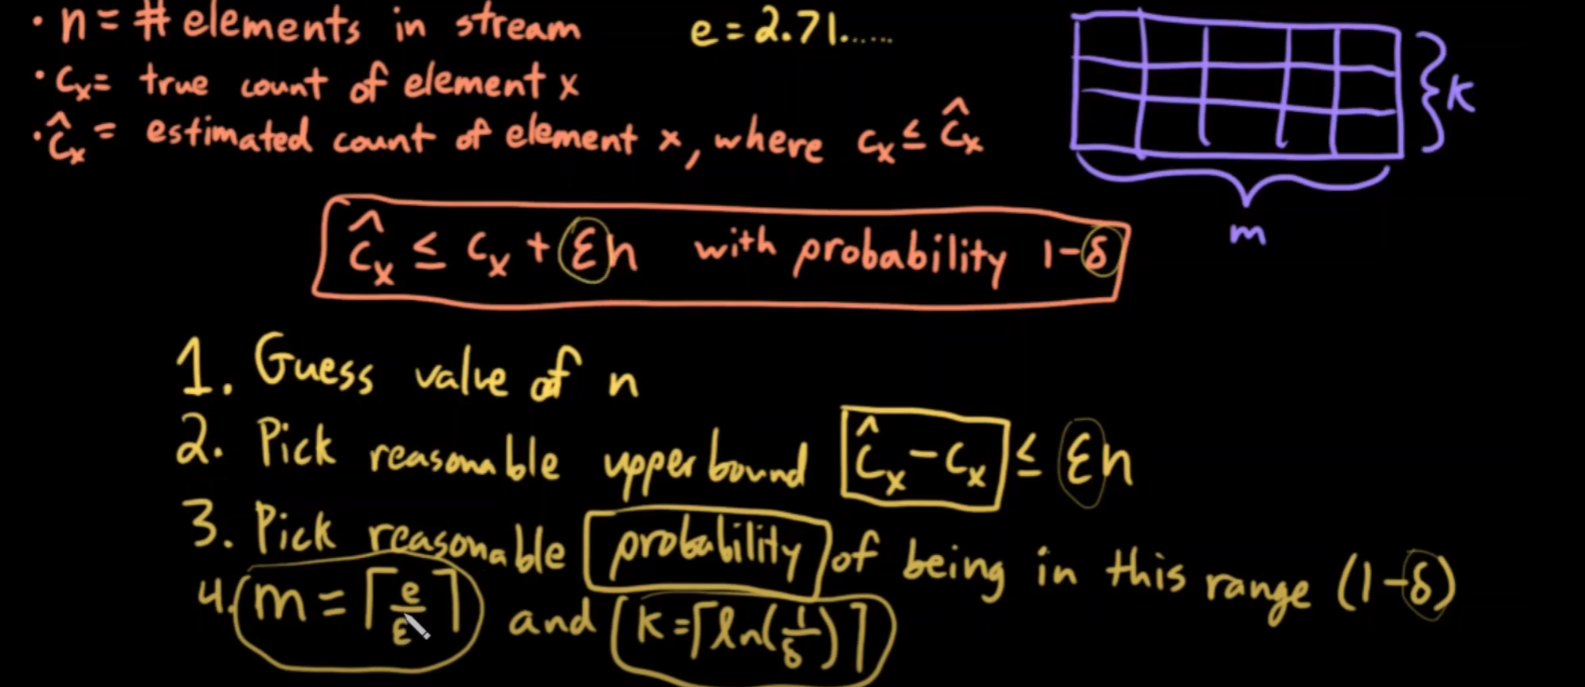 • n = # elements in stream
e = 2.71......
• cx = true count of element x
• ĉx = estimated count of element x, where cx ≤ ĉx
k
m
ĉx ≤ cx + εn with probability 1-δ
1. Guess value of n
2. Pick reasonable upper bound ĉx - cx ≤ εn
3. Pick reasonable probability of being in this range (1-δ)
4. m = ⌈e/ε⌉ and k = ⌈ln(1/δ)⌉